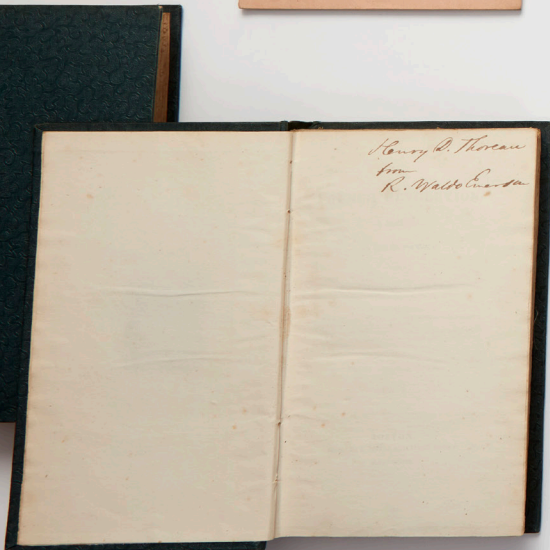 Henry D. Thoreau
from
R. Waldo Emerson